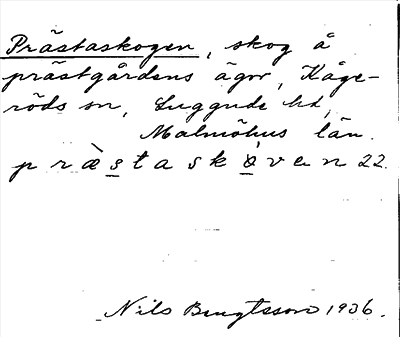 Prästaskogen, skog å
prästgårdens ägor, Kåge-
röds sn, Luggude hd,
Malmöhus län.
præ̀s̲taskö̲van 22.
Nils Bengtsson 1936.